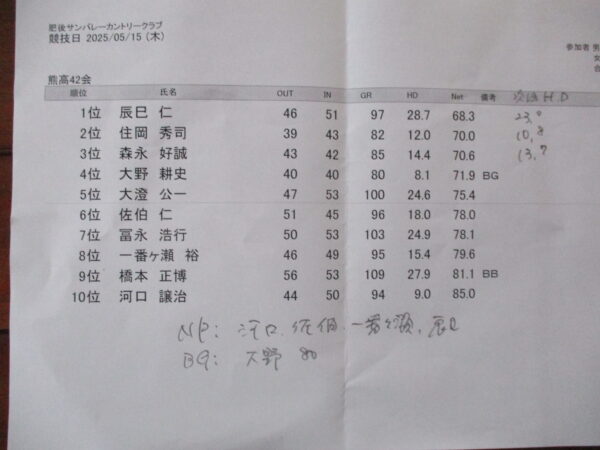 肥後サンバレーカントリークラブ
競技日 2025/05/15 (木)
参加者 男
熊高42会
順位 氏名 OUT IN GR HD Net 備考 次回HD
1位 辰巳 仁 46 51 97 28.7 68.3 23.0
2位 住岡 秀司 39 43 82 12.0 70.0 10.8
3位 森永 好誠 43 42 85 14.4 70.6 13.7
4位 大野 耕史 40 40 80 8.1 71.9 BG
5位 大澄 公一 47 53 100 24.6 75.4
6位 佐伯 仁 51 45 96 18.0 78.0
7位 冨永 浩行 50 53 103 24.9 78.1
8位 一番ヶ瀬 裕 46 49 95 15.4 79.6
9位 橋本 正博 56 53 109 27.9 81.1 BB
10位 河口 譲治 44 50 94 9.0 85.0
NP: 河口、佐伯、一番ヶ瀬、辰巳
BG: 大野 80